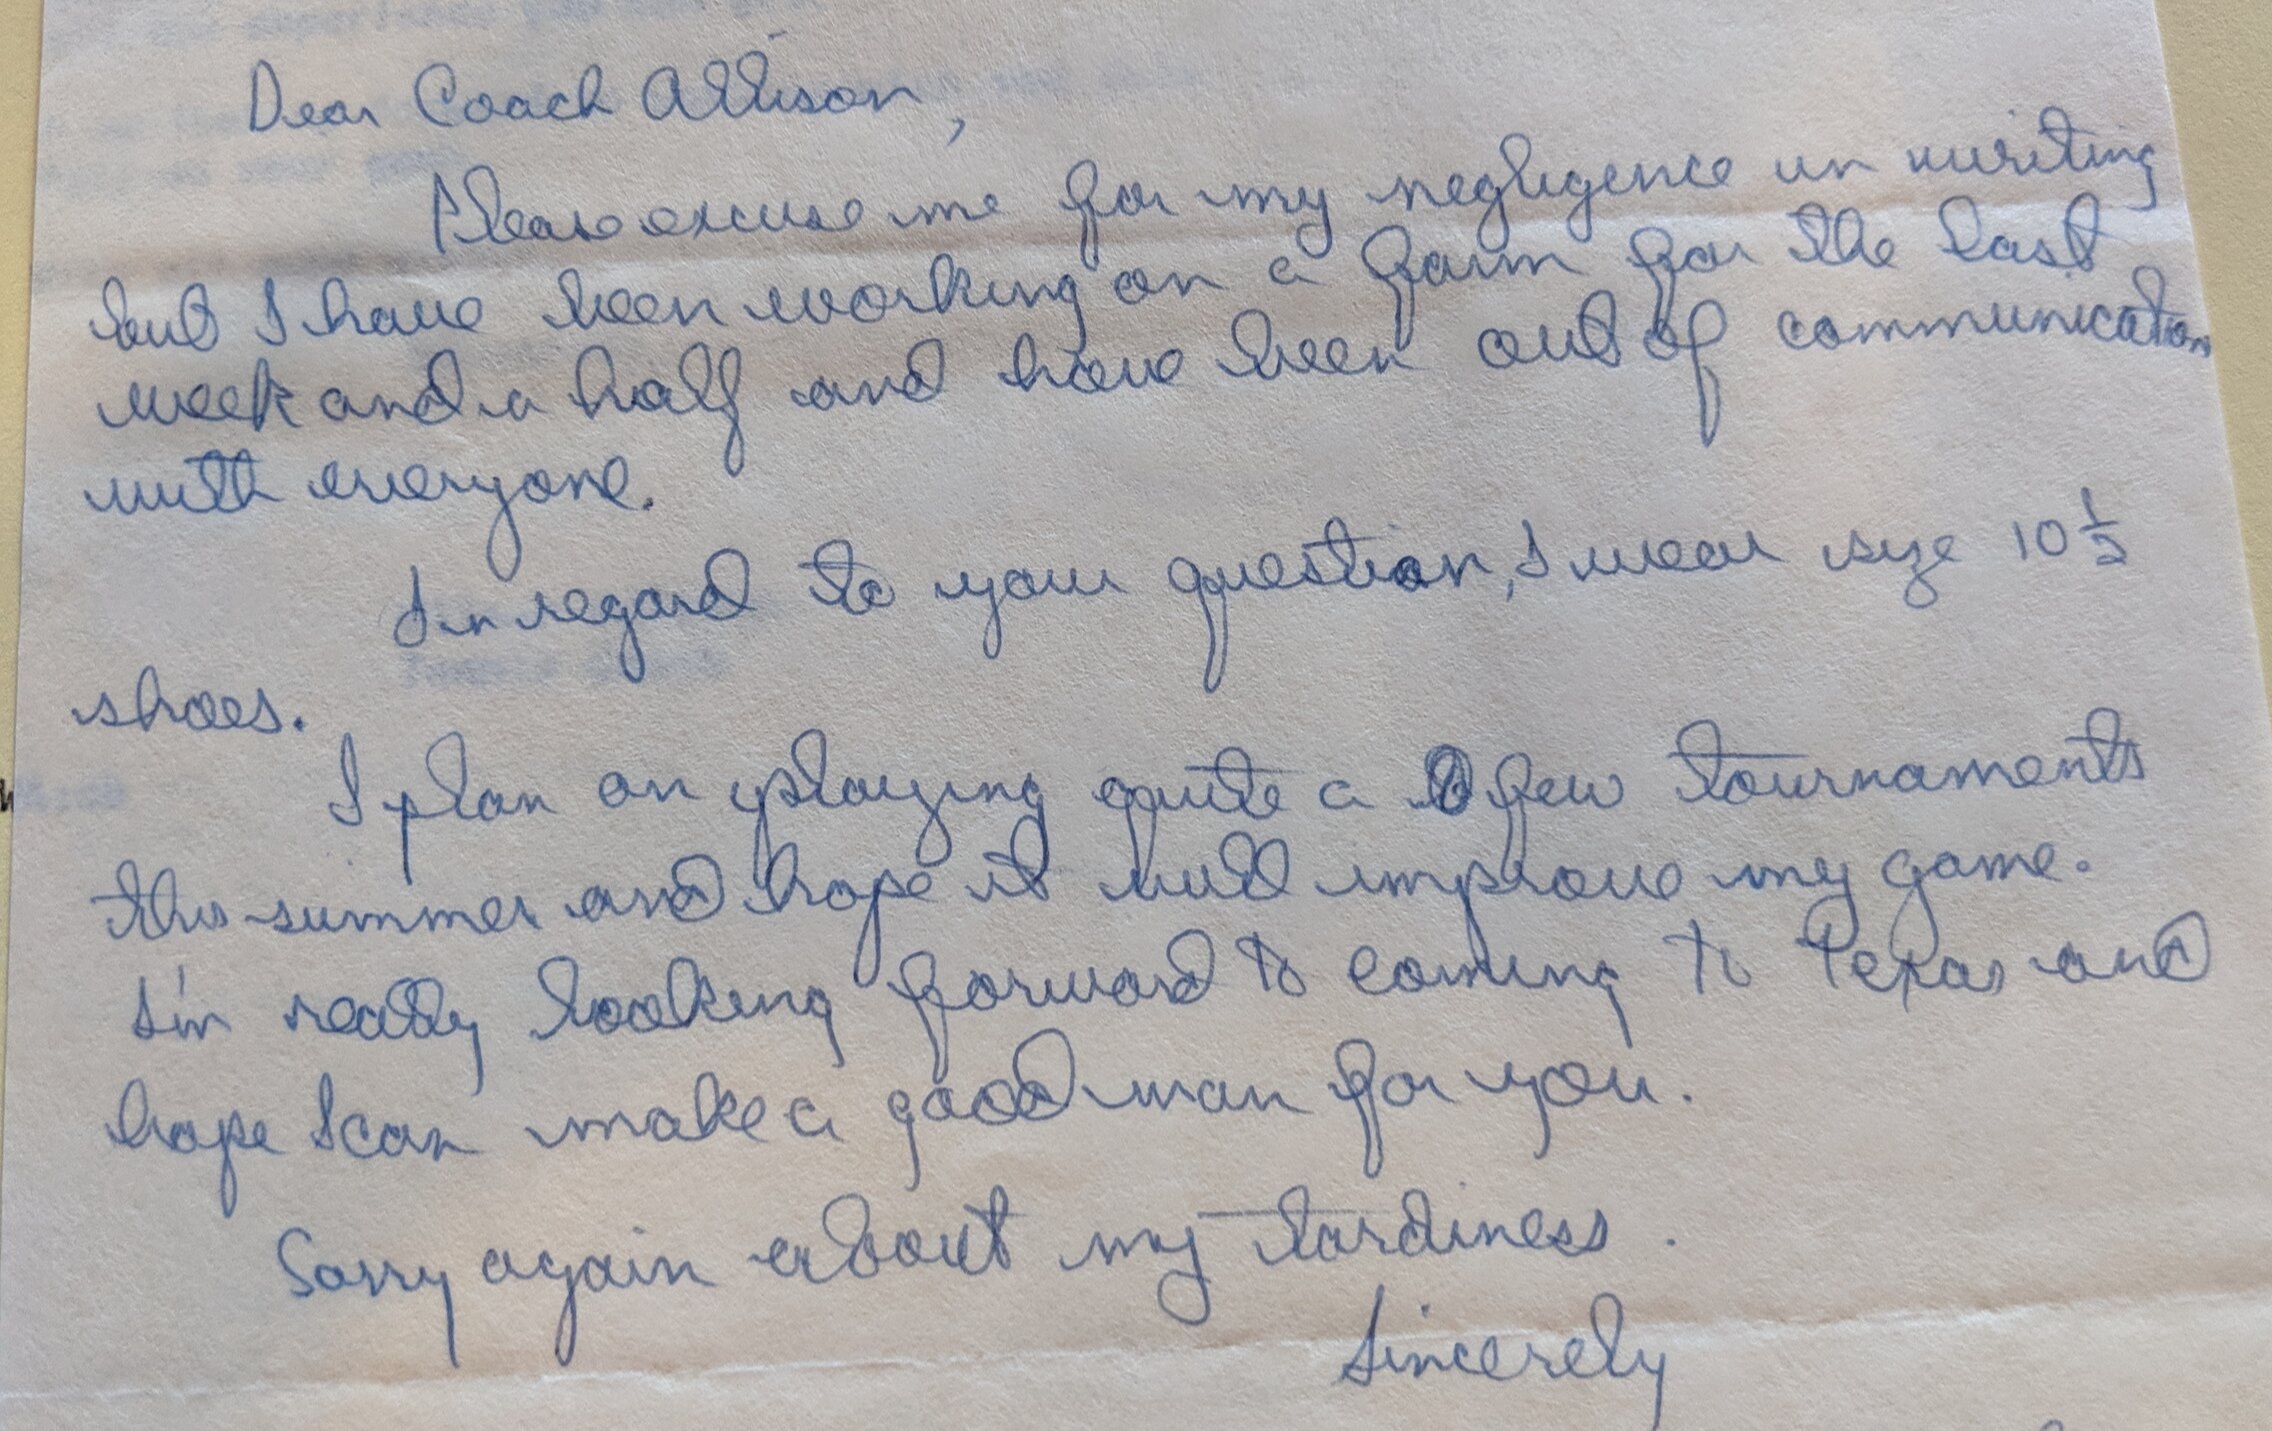 Dear Coach Allison,
Please excuse me for my negligence in writing
but I have been working on a farm for the last
week and a half and have been out of communication
with everyone.
In regard to your question, I wear size 10 1/2
shoes.
I plan on playing quite a few tournaments
this summer and hope it will improve my game.
I'm really looking forward to coming to Texas and
hope I can make a good man for you.
Sorry again about my tardiness.
Sincerely